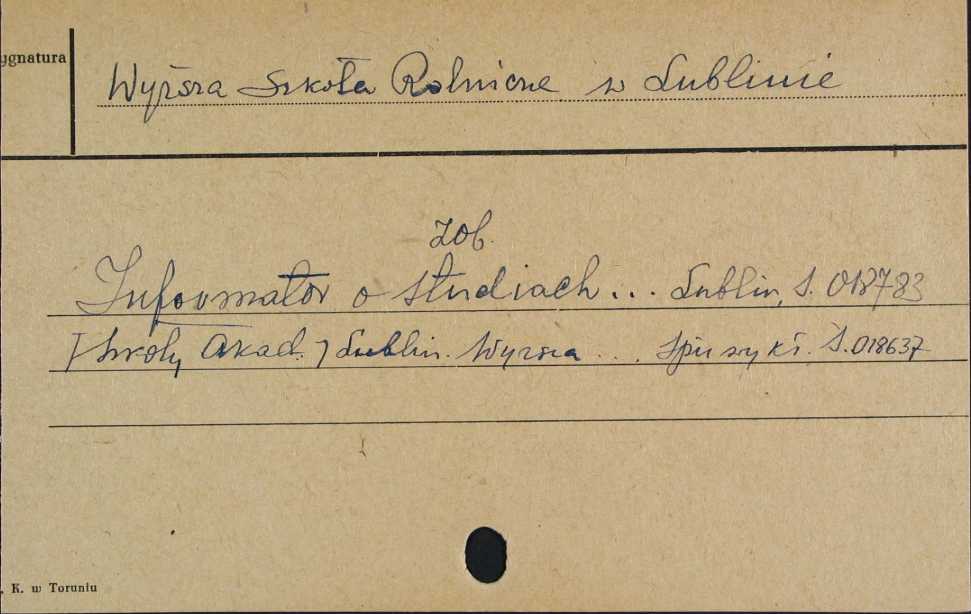 ygnatura
Wyższa Szkoła Rolnicza w Lublinie
zob.
Informator o studiach... Lublin, S. 018783
[Szkoły Akad.] Lublin. Wyższa ... S. 018637
. K. w Toruniu